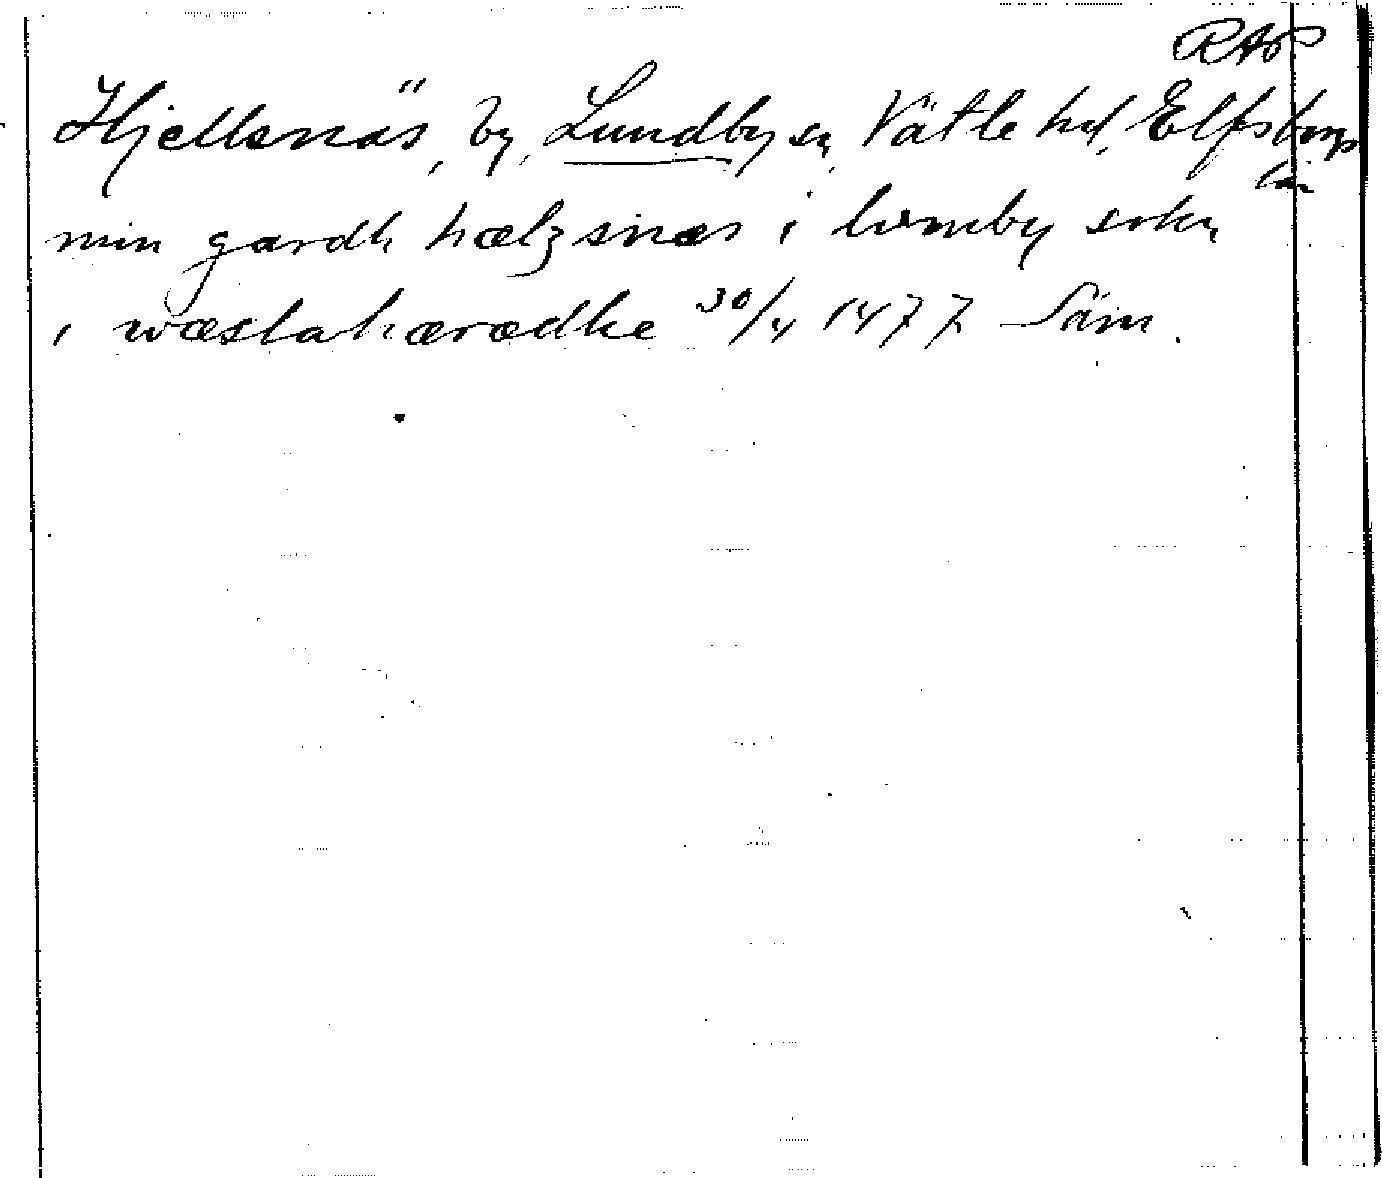 RAP
Hjellsnäs, by, Lundby sn, Vätle hd, Elfsborgs
län
min gardh hælzsnæs i lwmby sokn
i wæslahærædhe 30/4 1477 Säm.